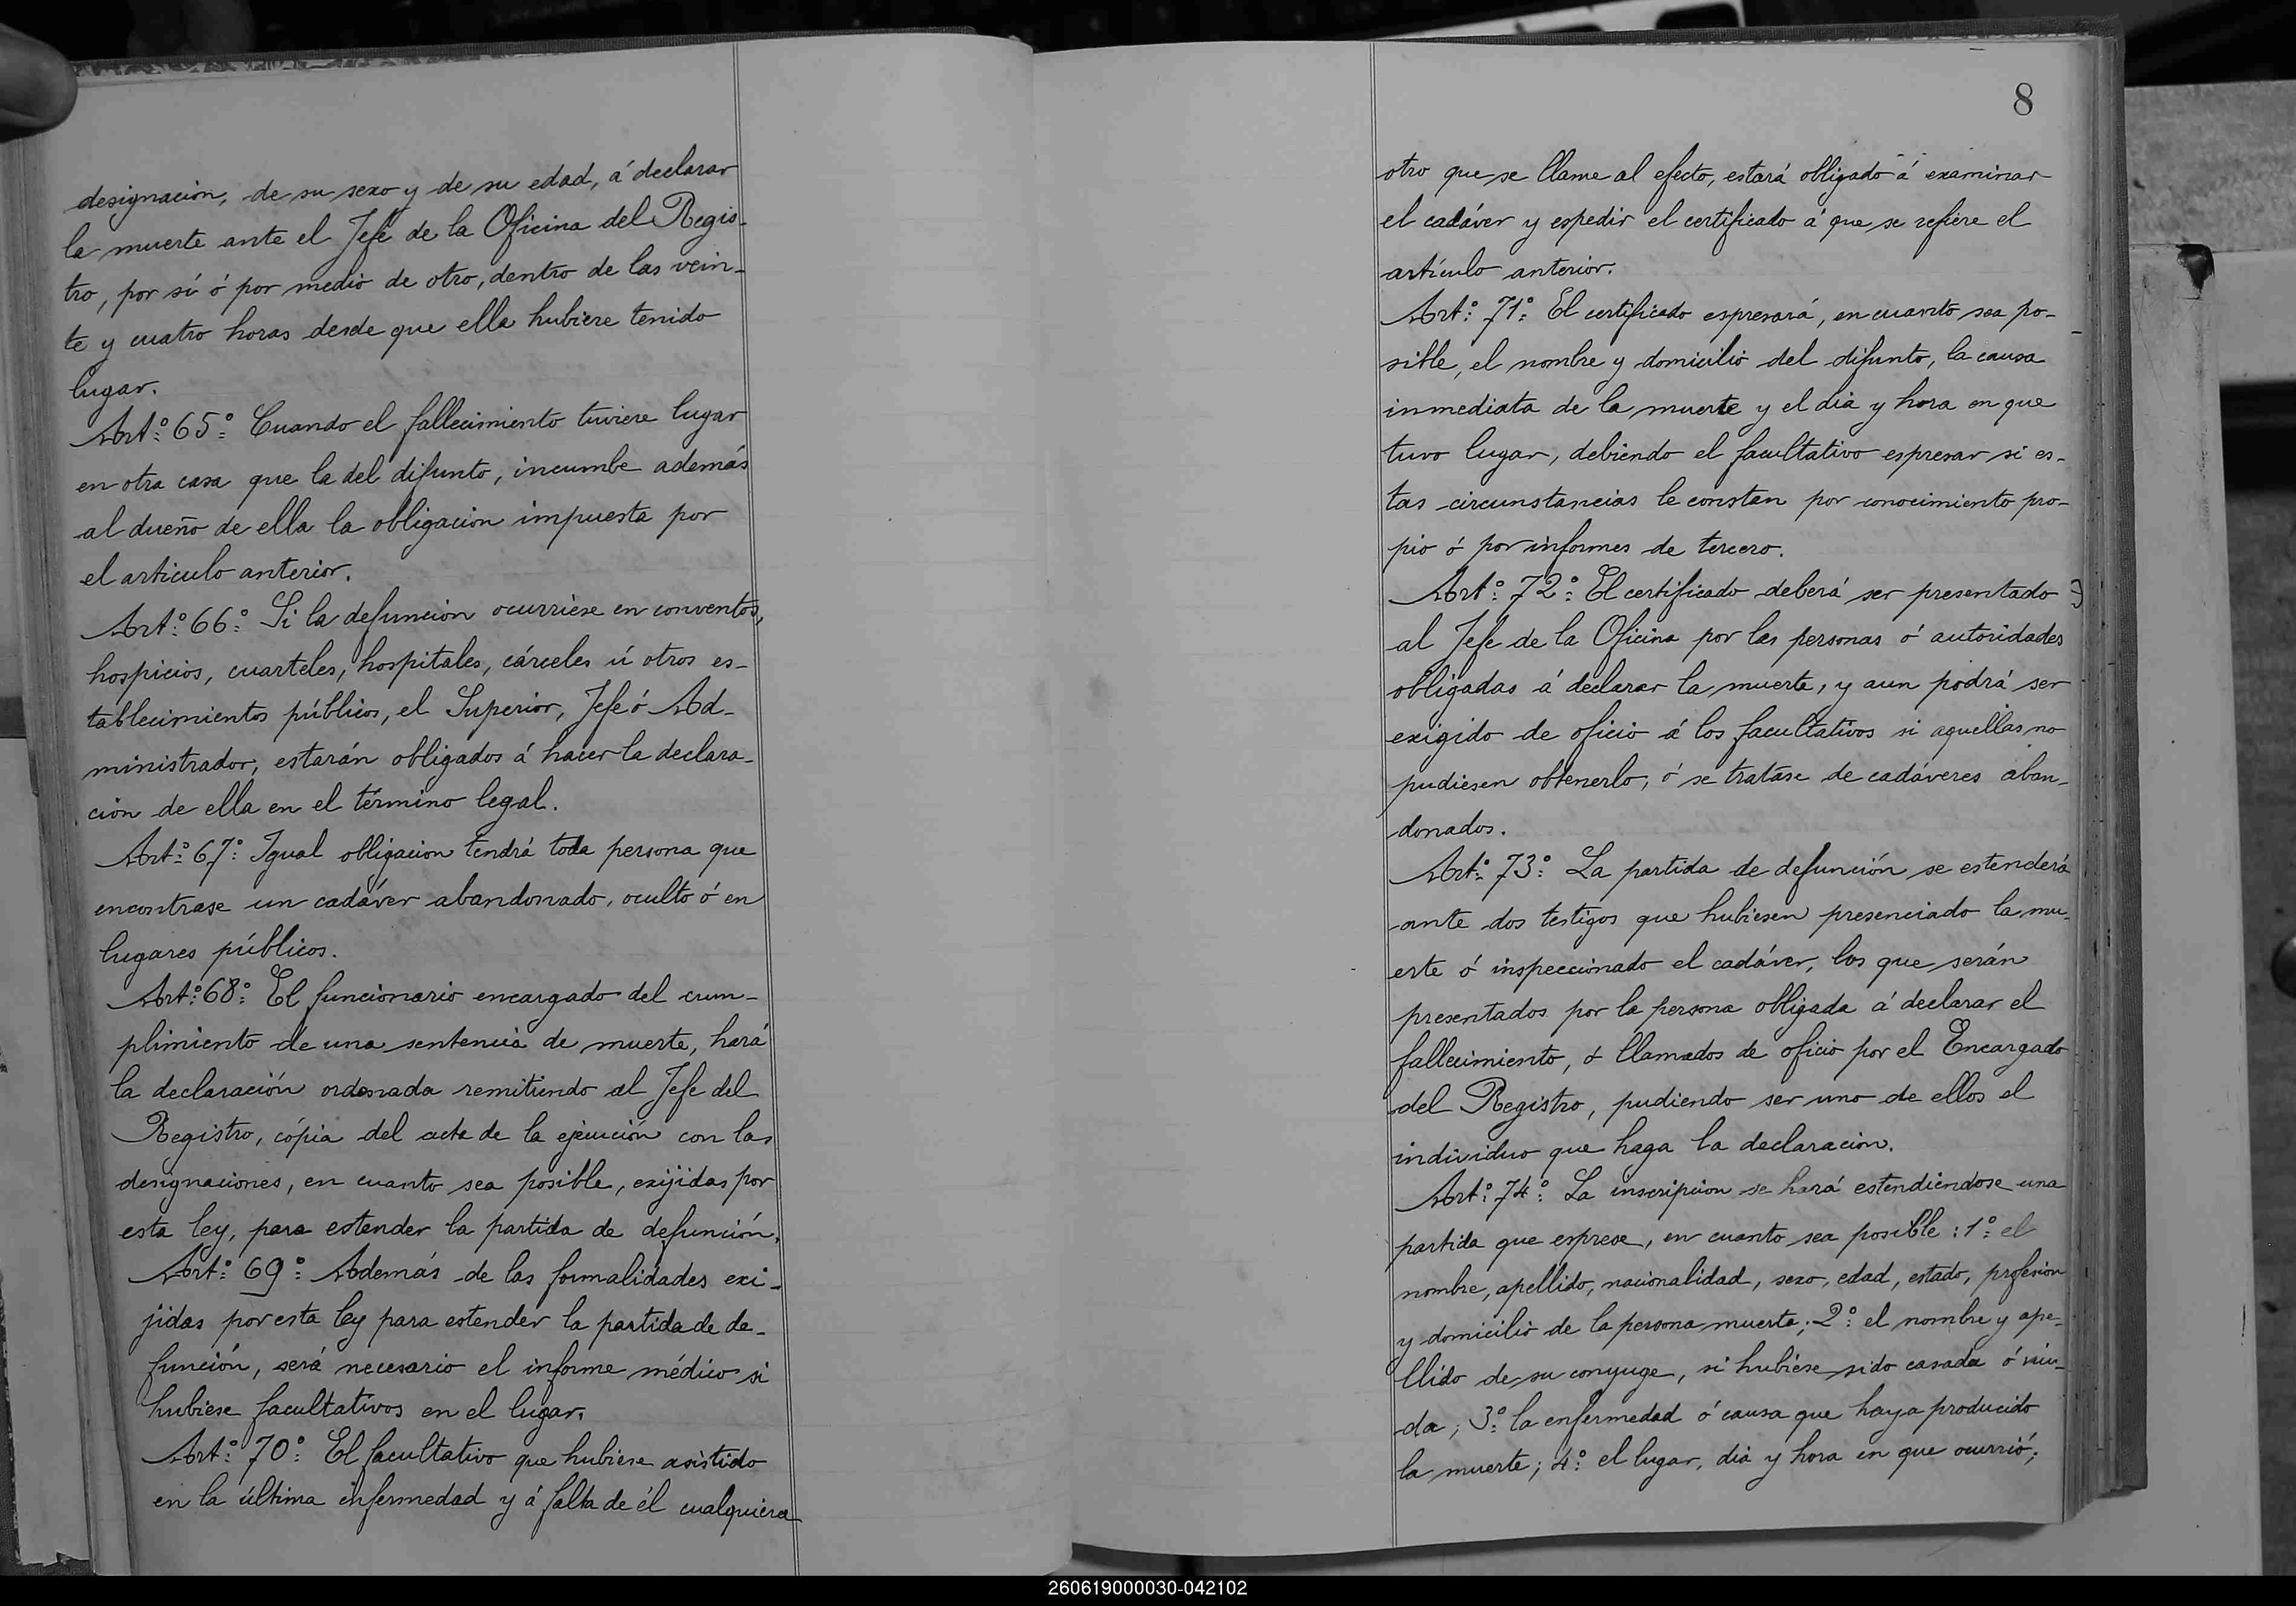 designacion, de su sexo y de su edad, á declarar
la muerte ante el Jefe de la Oficina del Regis-
tro, por sí ó por medio de otro, dentro de las vein-
te y cuatro horas desde que ella hubiere tenido
lugar.
Art.º 65º Cuando el fallecimiento tuviere lugar
en otra casa que la del difunto, incumbe además
al dueño de ella la obligacion impuesta por
el articulo anterior.
Art.º 66º Si la defuncion ocurriese en conventos,
hospicios, cuarteles, hospitales, cárceles ú otros es-
tablecimientos públicos, el Superior, Jefe ó Ad-
ministrador, estarán obligados á hacer la declara-
ción de ella en el término legal.
Art.º 67º Igual obligacion tendrá toda persona que
encontrase un cadáver abandonado, oculto ó en
lugares públicos.
Art.º 68º El funcionario encargado del cum-
plimiento de una sentencia de muerte, hará
la declaración ordenada remitiendo al Jefe del
Registro, cópia del acta de la ejecución con las
designaciones, en cuanto sea posible, exijidas por
esta ley, para estender la partida de defunción.
Art.º 69º Además de las formalidades exi-
jidas por esta ley para estender la partida de de-
función, será necesario el informe médico si
hubiese facultativos en el lugar.
Art.º 70º El facultativo que hubiese asistido
en la última enfermedad y á falta de él cualquiera
8
otro que se llame al efecto, estará obligado á examinar
el cadáver y espedir el certificado á que se refiere el
artículo anterior.
Art.º 71º El certificado espresará, en cuanto sea po-
sible, el nombre y domicilio del difunto, la causa
inmediata de la muerte y el dia y hora en que
tuvo lugar, debiendo el facultativo espresar si es-
tas circunstancias le constan por conocimiento pro-
pio ó por informes de tercero.
Art.º 72º El certificado deberá ser presentado
al Jefe de la Oficina por las personas ó autoridades
obligadas á declarar la muerte, y aun podrá ser
exigido de oficio á los facultativos si aquellas no
pudiesen obtenerlo, ó se tratase de cadáveres aban-
donados.
Art.º 73º La partida de defunción se estenderá
ante dos testigos que hubiesen presenciado la mu-
erte ó inspeccionado el cadáver, los que serán
presentados por la persona obligada á declarar el
fallecimiento, ó llamados de oficio por el Encargado
del Registro, pudiendo ser uno de ellos el
individuo que haga la declaracion.
Art.º 74º La inscripcion se hará estendiéndose una
partida que esprese, en cuanto sea posible: 1º el
nombre, apellido, nacionalidad, sexo, edad, estado, profesion
y domicilio de la persona muerta; 2º el nombre y ape-
llido de su conyuge, si hubiese sido casada ó viu-
da; 3º la enfermedad ó causa que haya producido
la muerte; 4º el lugar, dia y hora en que ocurrió;
260619000030-042102